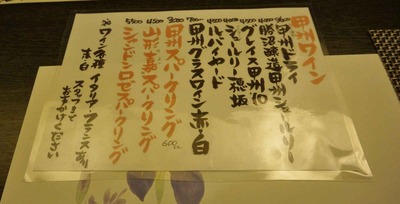 甲州ワイン
甲州ドライ
勝沼醸造甲州シュールリー 4500
グレイス甲州 4000
シュールリー穂坂 4500
ルバイヤード 4000
甲州グラスワイン赤・白 700
甲州スパークリング
山形嘉スパークリング 4500
シャンドンロゼスパークリング 5500
ワイン各種 イタリア フランスあり
赤・白 スタッフまでお声がけください